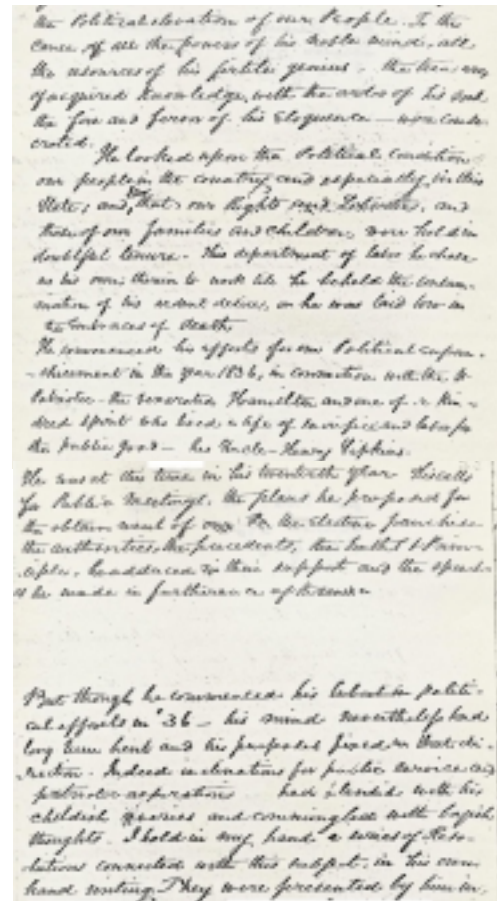 the Political elevation of our People. To this
cause of all the powers of his noble mind, all
the resources of his fertile genius, the treasury
of acquired knowledge, with the ardor of his soul
the fire and fervor of his Eloquence — were conse-
crated.
He looked upon the Political condition
our people in the country and especially in this
State; and, that our Rights and Liberties, and
those of our families and children, were held in
doubtful tenure. This department of labor he chose
as his own; therein to work till he beheld the consum-
mation of his ardent desires, or he was laid low in
the embraces of death.
He commenced his efforts for our Political enfran-
-chisement in the year 1836, in connection with the
Patriotic - the venerated Hamilton and one of a kin-
dred spirit who lived a life of sacrifice and labor for
the public good — his Uncle - Henry Sipkins.
He was at this time in his twentieth year. His calls
for Public Meetings, the plans he proposed for
the obtainment of our the Elective franchise
the authorities, the precedents, the truths & Prin-
ciples, he adduced in their support and the speech-
s he made in furtherance
But though he commenced his labors in politi-
cal efforts in '36 — his mind nevertheless had
long been bent and his purposes fixed in that di-
rection. Indeed inclinations for public service and
patriotic aspirations had blended with his
childish and commingled with boyish
thoughts. I hold in my hand a series of Reso-
lutions connected with this subject, in his own
hand writing. They were presented by him in